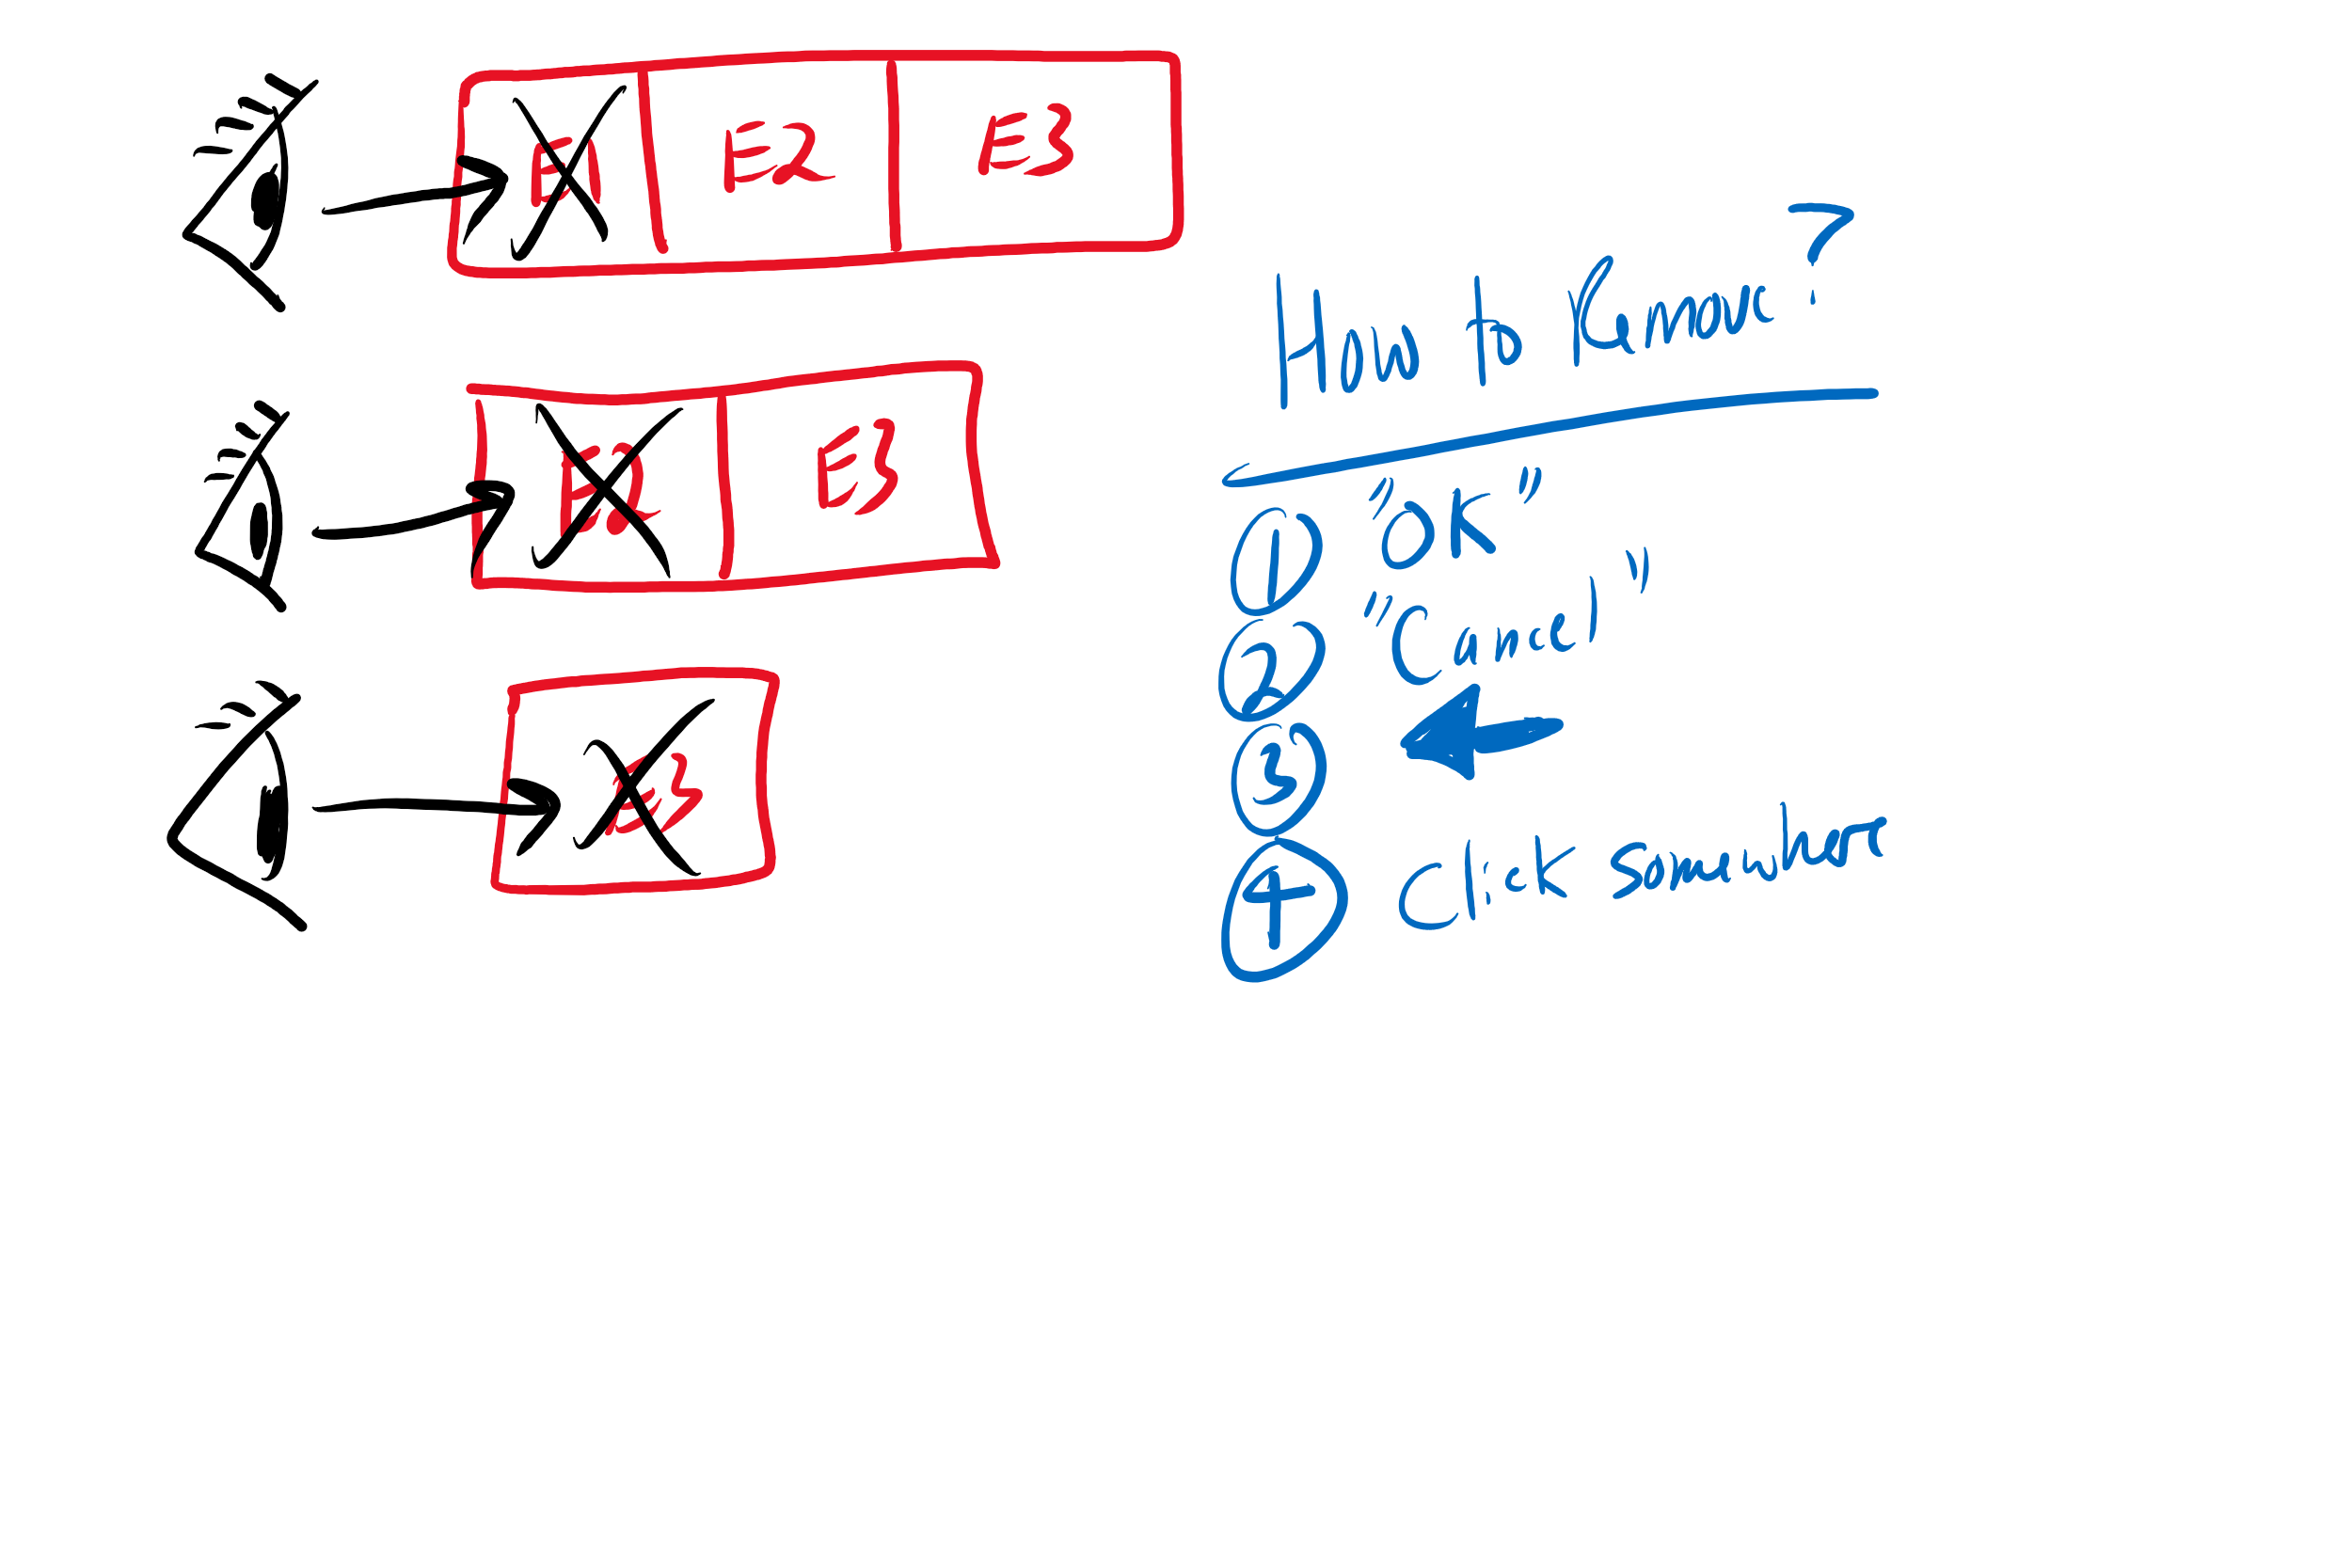 E1 E2 E3
E2 E3
E3
How to Remove?
① "OK"
② "Cancel"
③ ←
④ Click somewhere